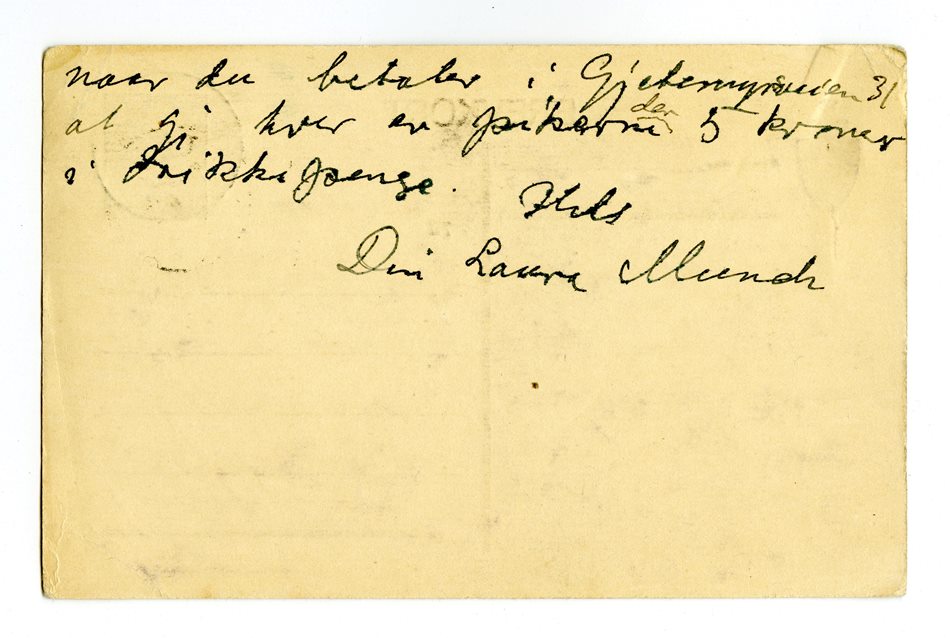 naar du betaler i Gjetemyrsveien 31
at gi hver av pikerne der 5 kroner
i drikkepenge.
Hils
Din Laura Munch